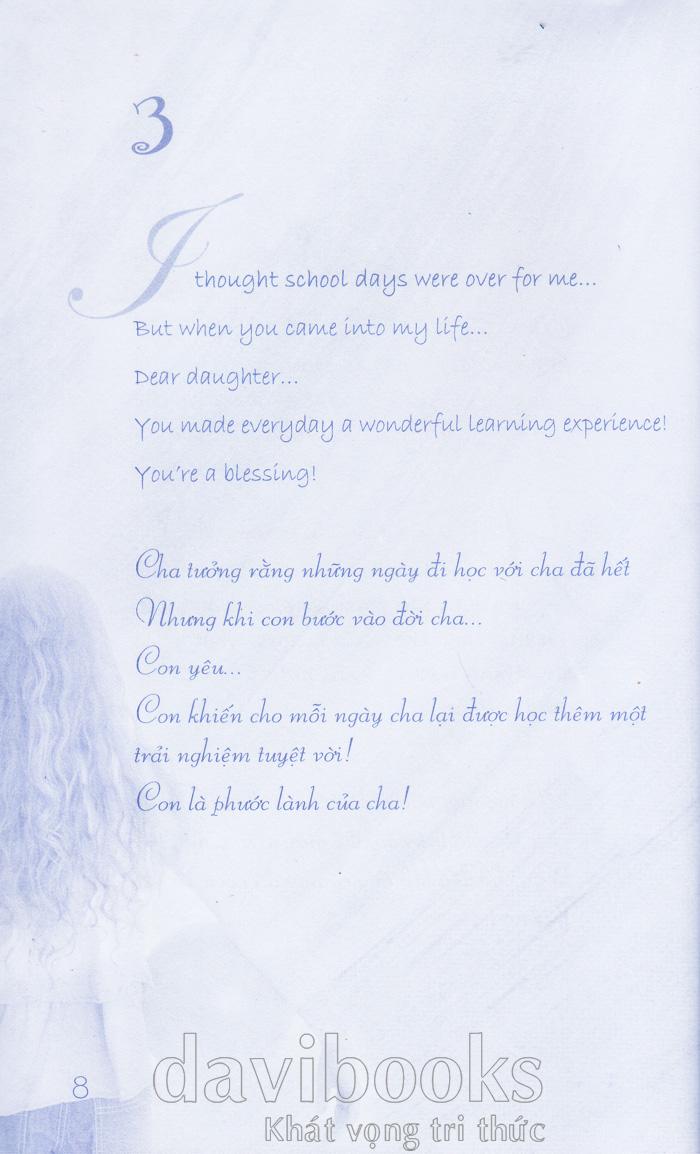 3
I thought school days were over for me...
But when you came into my life...
Dear daughter...
You made everyday a wonderful learning experience!
You're a blessing!
Cha tưởng rằng những ngày đi học với cha đã hết
Nhưng khi con bước vào đời cha...
Con yêu...
Con khiến cho mỗi ngày cha lại được học thêm một
trải nghiệm tuyệt vời!
Con là phước lành của cha!
8
davibooks
Khát vọng tri thức